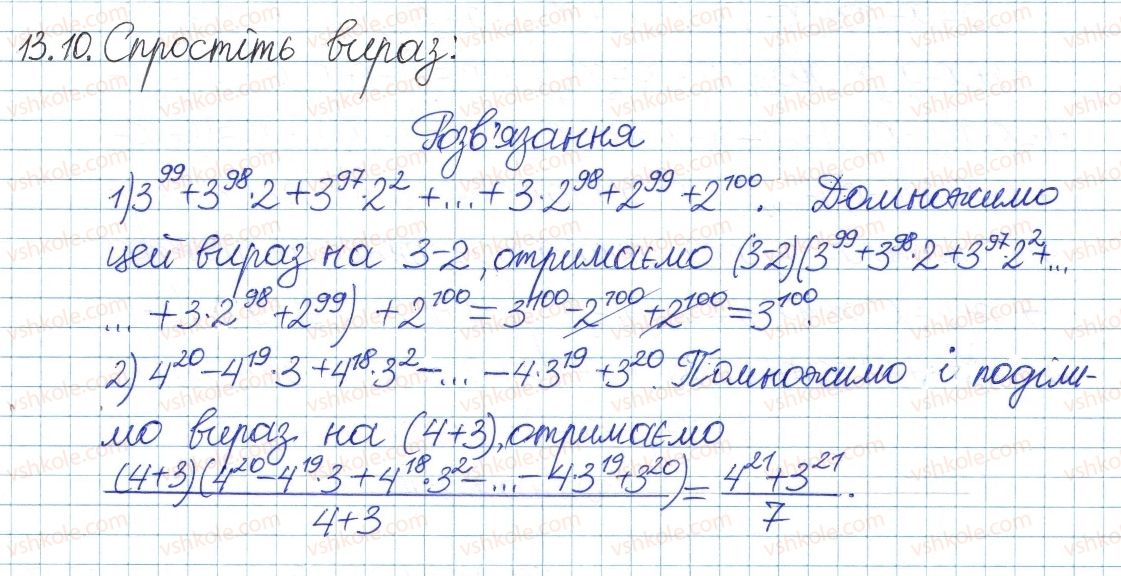 13.10. Спростіть вираз:
Розв'язання
1) 3^99 + 3^98 · 2 + 3^97 · 2^2 + ... + 3 · 2^98 + 2^99 + 2^100. Домножимо
цей вираз на 3-2, отримаємо (3-2)(3^99 + 3^98 · 2 + 3^97 · 2^2 + ...
... + 3 · 2^98 + 2^99) + 2^100 = 3^100 - 2^100 + 2^100 = 3^100.
2) 4^20 - 4^19 · 3 + 4^18 · 3^2 - ... - 4 · 3^19 + 3^20. Помножимо і поділи-
мо вираз на (4+3), отримаємо
(4+3)(4^20 - 4^19 · 3 + 4^18 · 3^2 - ... - 4·3^19 + 3^20) / 4+3 = 4^21 + 3^21 / 7.
vshkole.com